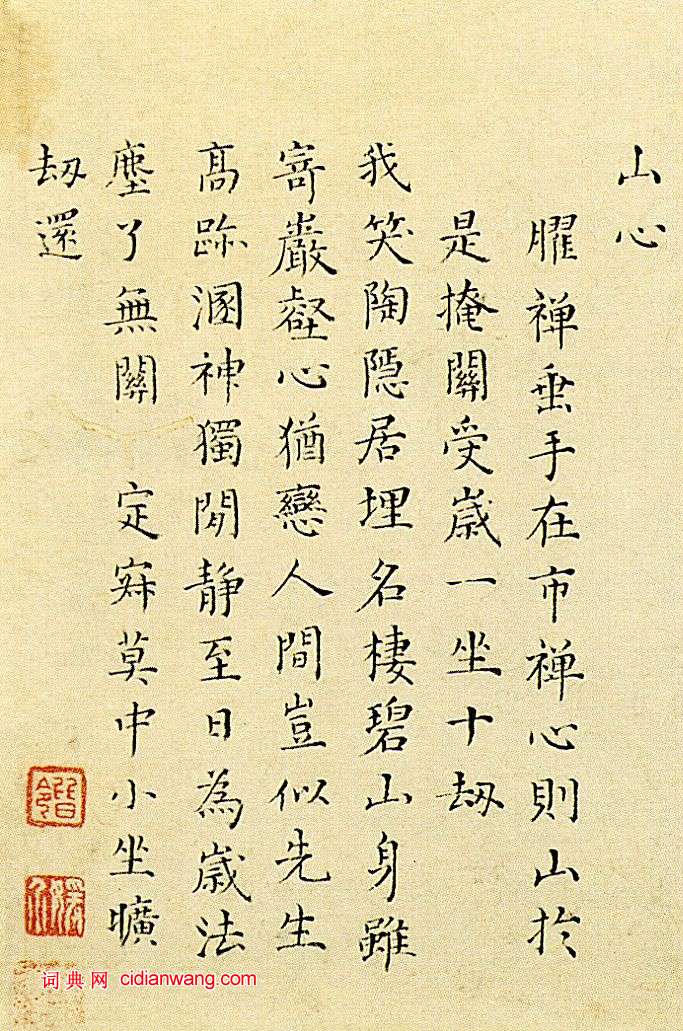 山心
臞禪垂手在市禪心則山於
是掩關受歲一坐十劫
我笑陶隱居埋名棲碧山身雖
寄巖壑心猶戀人間豈似先生
高跡溷神獨閒靜至日為歲法
塵了無關 定寂莫中小坐曠
劫還
词典网 cidianwang.com